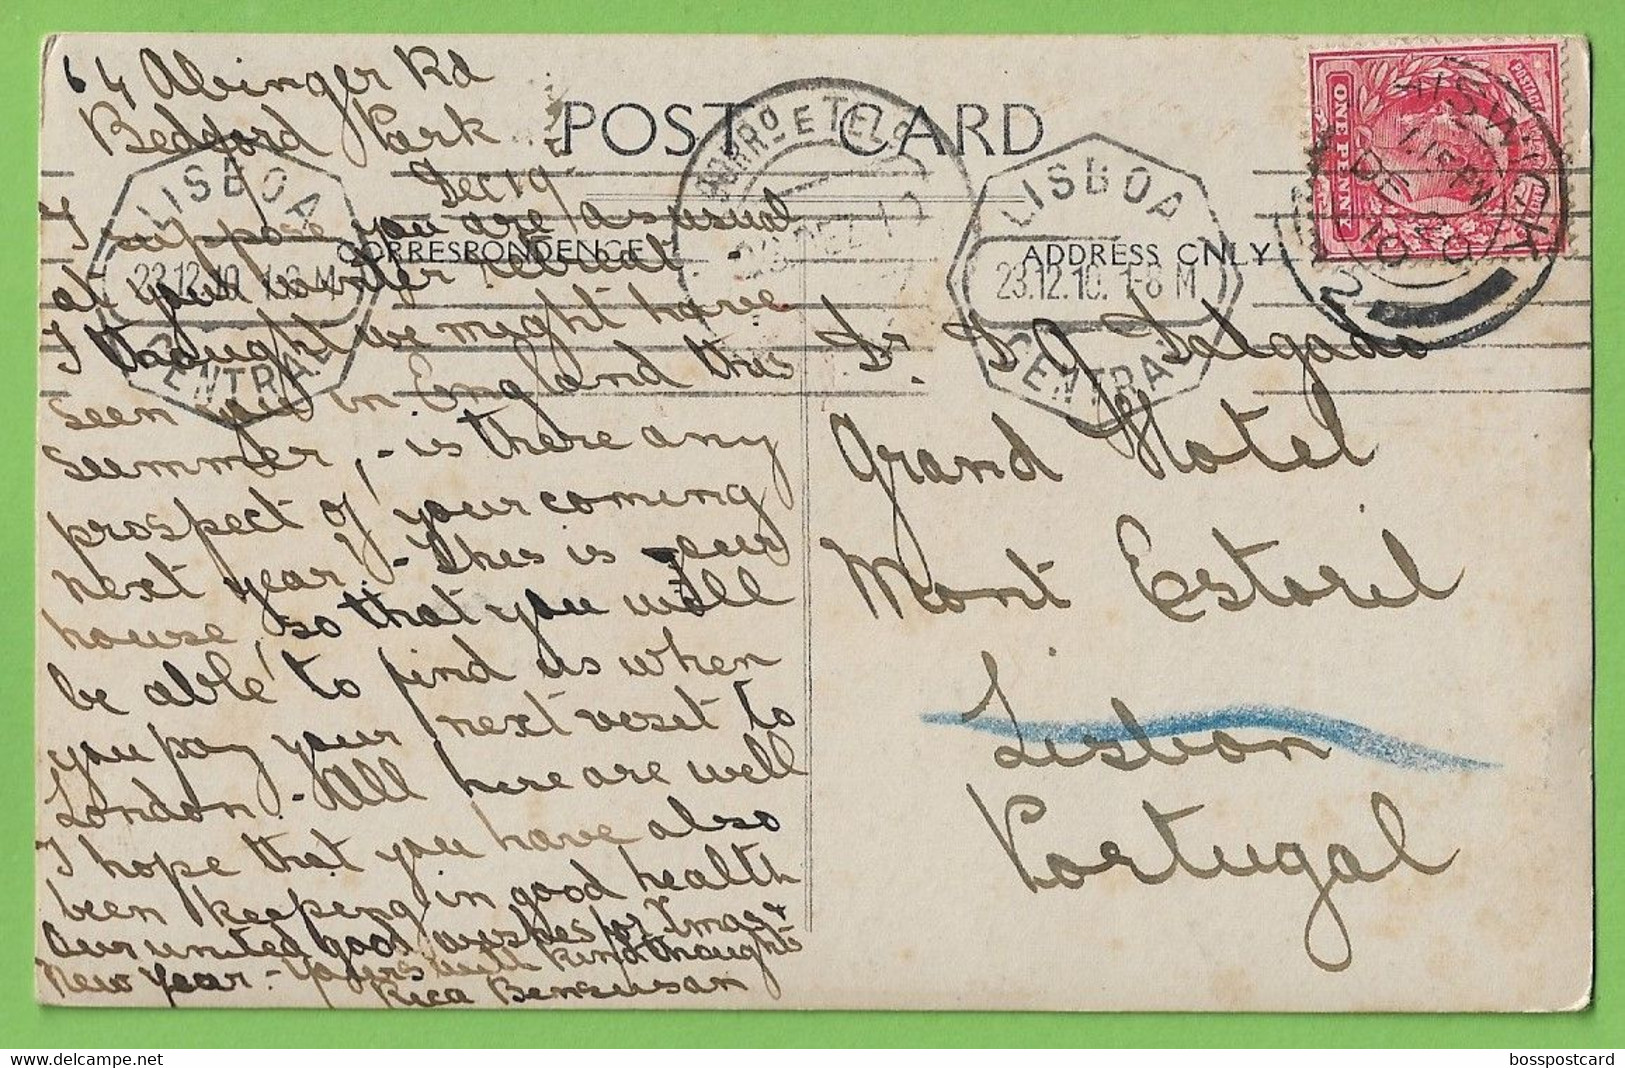 64 Abinger Rd
Bedford Park
Dec 19
I suppose you are as usual
at your winter retreat -
I thought we might have
seen you in England this
summer, - is there any
prospect of your coming
next year? - This is our
house, so that you will
be able to find us when
you pay your next visit to
London. - All here are well
I hope that you have also
been keeping in good health
Our united good wishes for Xmas &
New Year - Yours with kind thoughts
Rica Bensusan
POST CARD
CORRESPONDENCE
ADDRESS ONLY
Sr.
Salgado
Grand Hotel
Mont Estoril
Lisbon
Portugal
LISBOA
23.12.10. 1-8 M
CENTRAL
LISBOA
23.12.10. 1-8 M
CENTRAL
CORRO E TELO
CHISWICK
11.15 PM
DE 20
10
2
POSTAGE
ONE PENNY
bosspostcard